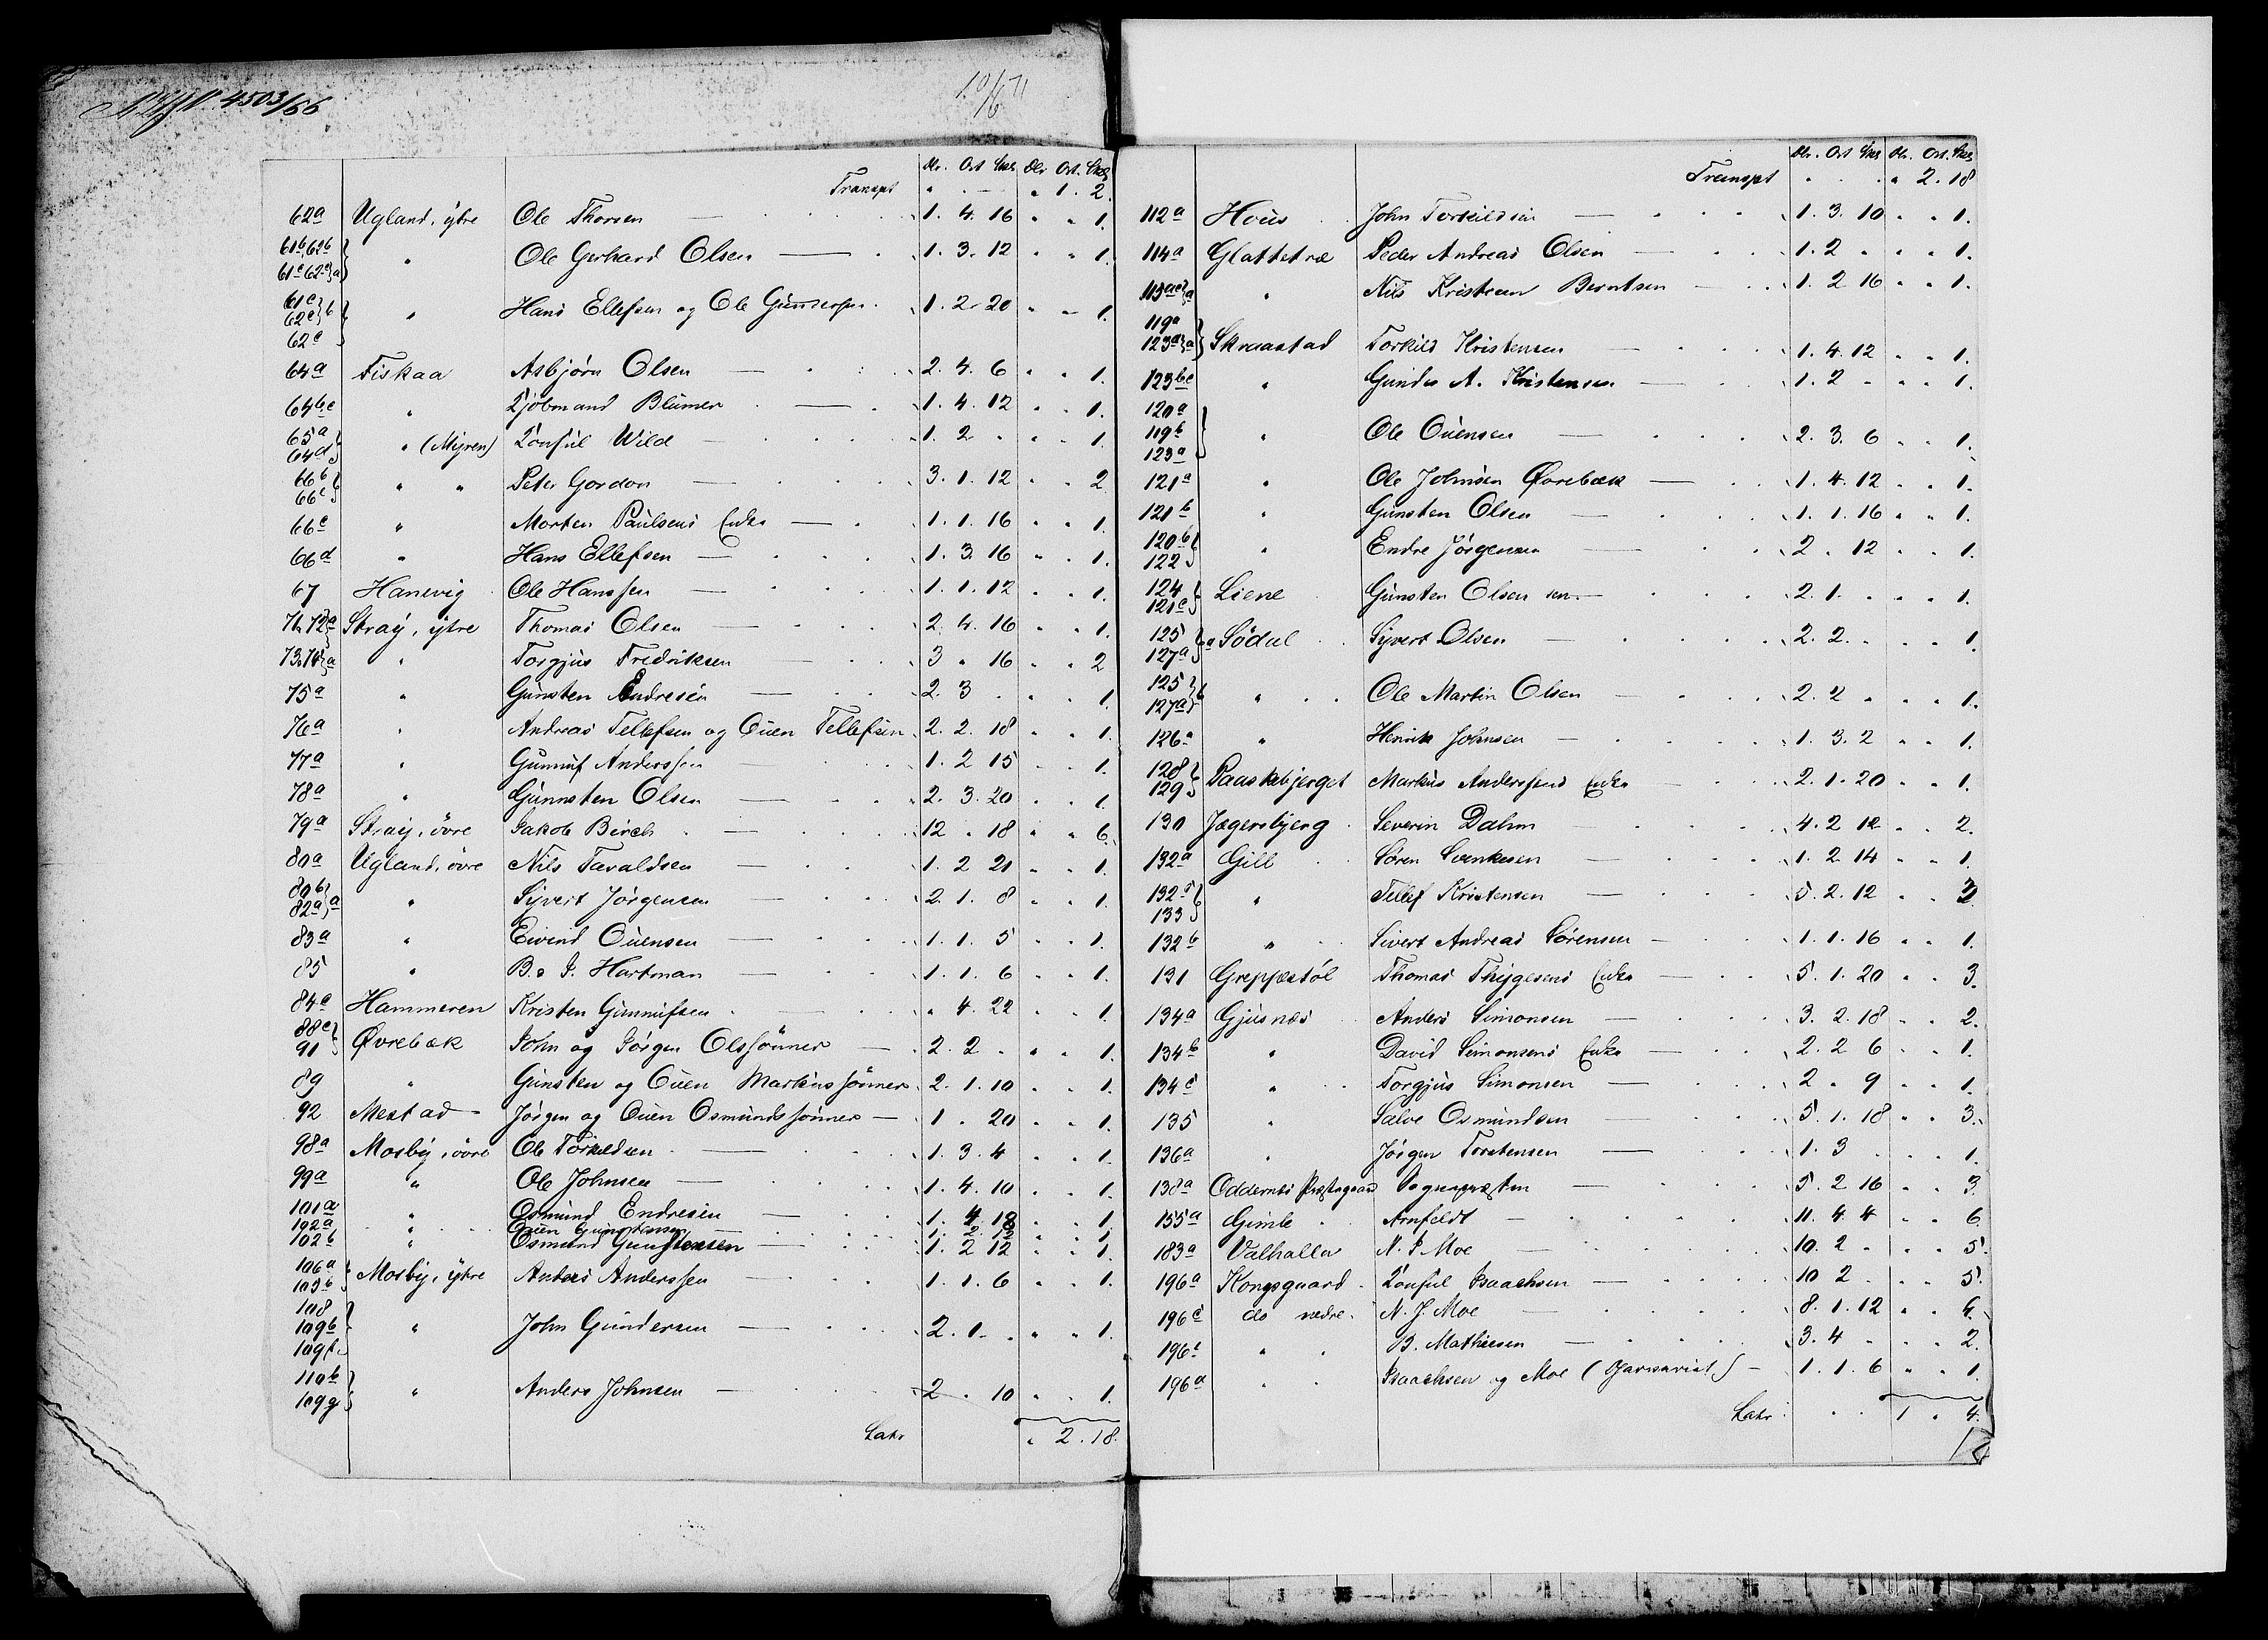 4503/66
10/6 71
Dlr. Ort Skr Dlr Ort. Skr
Transpt " . — " 1. 2.
62a Ugland, ytre Ole Thorsen — 1. 4. 16 " " 1.
61b, 62b
61c 62c} a} " Ole Gerhard Olsen — 1. 3. 12 " " 1.
61c
62c} b " Hans Ellefsen og Ole Gundersen 1. 2. 20 " " 1.
62e
64a Fiskaa Asbjörn Olsen — 2. 4. 6 " " 1.
64bc " Kjöbmand Blumer — 1. 4. 12 " " 1.
65a
64d} " (Myren) Konsul Wild — 1. 2 " " " 1.
66b
66c} " " Peter Gordon — 3. 1. 12 " " 2
66c " Morten Paulsens Enke — 1. 1. 16 " " 1.
66d " Hans Ellefsen — 1. 3. 16 " " 1.
67 Hanevig Ole Hanssen — 1. 1. 12 " " 1.
71, 72a Stray, ytre Thomas Olsen — 2. 4. 16 " " 1.
73, 74} a " Torgjus Fredriksen — 3 " 16 " " 2
75a " Gunsten Endresen — 2. 3 " " " 1.
76a " Andreas Tellefsen og Ouen Tellefsen 2. 2. 18 " " 1.
77a " Gunnuf Anderssen 1. 2 15 " " 1.
78a " Gunnsten Olsen — 2. 3. 20 " " 1.
79a Stray, övre Jakob Birch — 12 " 18 " " 6.
80a Ugland, övre Nils Tavaldsen — 1. 2 21 " " 1.
80b
82a} a " Syvert Jörgensen — 2. 1. 8 " " 1.
83a " Eivind Ouensen — 1. 1. 5 " " 1.
85 " B. & J. Hartman — 1. 1. 6 " " 1.
84a Hammeren Kristen Gunnufsen — " 4. 22 " " 1.
88c
91} Øvrebæk John og Jörgen Olssönner — 2. 2 " " " 1.
89 " Gunsten og Ouen Markussönner 2. 1. 10 " " 1.
92 Mestad Jörgen og Ouen Osmundssönner — 1 " 20 " " 1.
98a Mosby, övre Ole Torkildsen — 1. 3. 4 " " 1.
99a " Ole Johnsen — 1. 4. 10 " " 1.
101a " Osmund Endresen — 1. 4 18 " " 1.
102a " Ouen Gunstensen — 1. 2. 12 " " 1.
102b " Osmund Gunstensen — 1. 2 12 " " 1.
106a
103b} Mosby, ytre Anders Anderssen — 1. 1. 6 " " 1.
108
109b
109f} " John Gundersen — 2. 1. " " " 1.
110b
109g} " Anders Johnsen — 2 " 10 " " 1.
Latr " 2. 18.
Dlr. Ort Skr Dlr. Ort. Skr
Transpt " . . " 2. 18
112a Hous John Torkildsen — 1. 3. 10 " " 1.
114a Glattetræ Peder Andreas Olsen — 1. 2 " " " 1.
115ac} a " Nils Kristian Berntsen — 1. 2 16 " " 1.
119a
123a} a} Skraastad Torkild Kristensen — 1. 4. 12 " " 1.
123bc " Gunder A. Kristensen — 1. 2 " " " 1.
120a
119b
123a} " Ole Ouensen — 2. 3. 6 " " 1.
121a " Ole Johnsen Øvrebæk — 1. 4. 12 " " 1.
121b " Gunsten Olsen — 1. 1. 16 " " 1.
120b
122} " Endre Jörgensen — 2 " 12 " " 1.
124
121c} Liene Gunsten Olsen sen. — 2. 1. " " " 1.
125
127a} a Södal Syvert Olsen — 2. 2. " " " 1.
125
127a} b " Ole Martin Olsen — 2. 2 " " " 1.
126a " Henrik Johnsen — 1. 3. 2 " " 1.
128
129} Paaskebjerget Markus Anderssens Enke — 2. 1. 20 " " 1.
130 Jægersbjerg Severin Dahm — 4. 2 12 " " 2.
132a Gill Sören Svenkesen — 1. 2. 14 " " 1.
132
133} " Tellef Kristensen — 5. 2. 12 " " 3
132b " Sivert Andreas Sörensen — 1. 1. 16 " " 1.
131 Greppestöl Thomas Thygesens Enke — 5. 1. 20 " " 3.
134a Gjusnæs Anders Simonsen — 3. 2. 18 " " 2.
134b " David Simonsens Enke — 2. 2 6 " " 1.
134c " Torgjus Simonsen — 2 " 9 " " 1.
135 " Salve Osmundsen — 5. 1. 18 " " 3.
136a " Jörgen Torstensen — 1. 3 " " " 1.
138a Oddernes Præstegaard Sognepræsten — 5. 2 16 " " 3.
155a Gimle Arnfeldt — 11. 4. 4 " " 6.
183a Valhalla N. J. Moe — 10. 2 " " " 5.
196a Kongsgaard Konsul Isaachsen — 10 2 " " " 5.
196c do nedre N. J. Moe — 8. 1. 12 " " 4.
196c " B. Mathiesen — 3. 4 " " " 2.
196d " Isaachsen og Moe — 1. 1. 6 " " 1.
Latr 1 " 4.